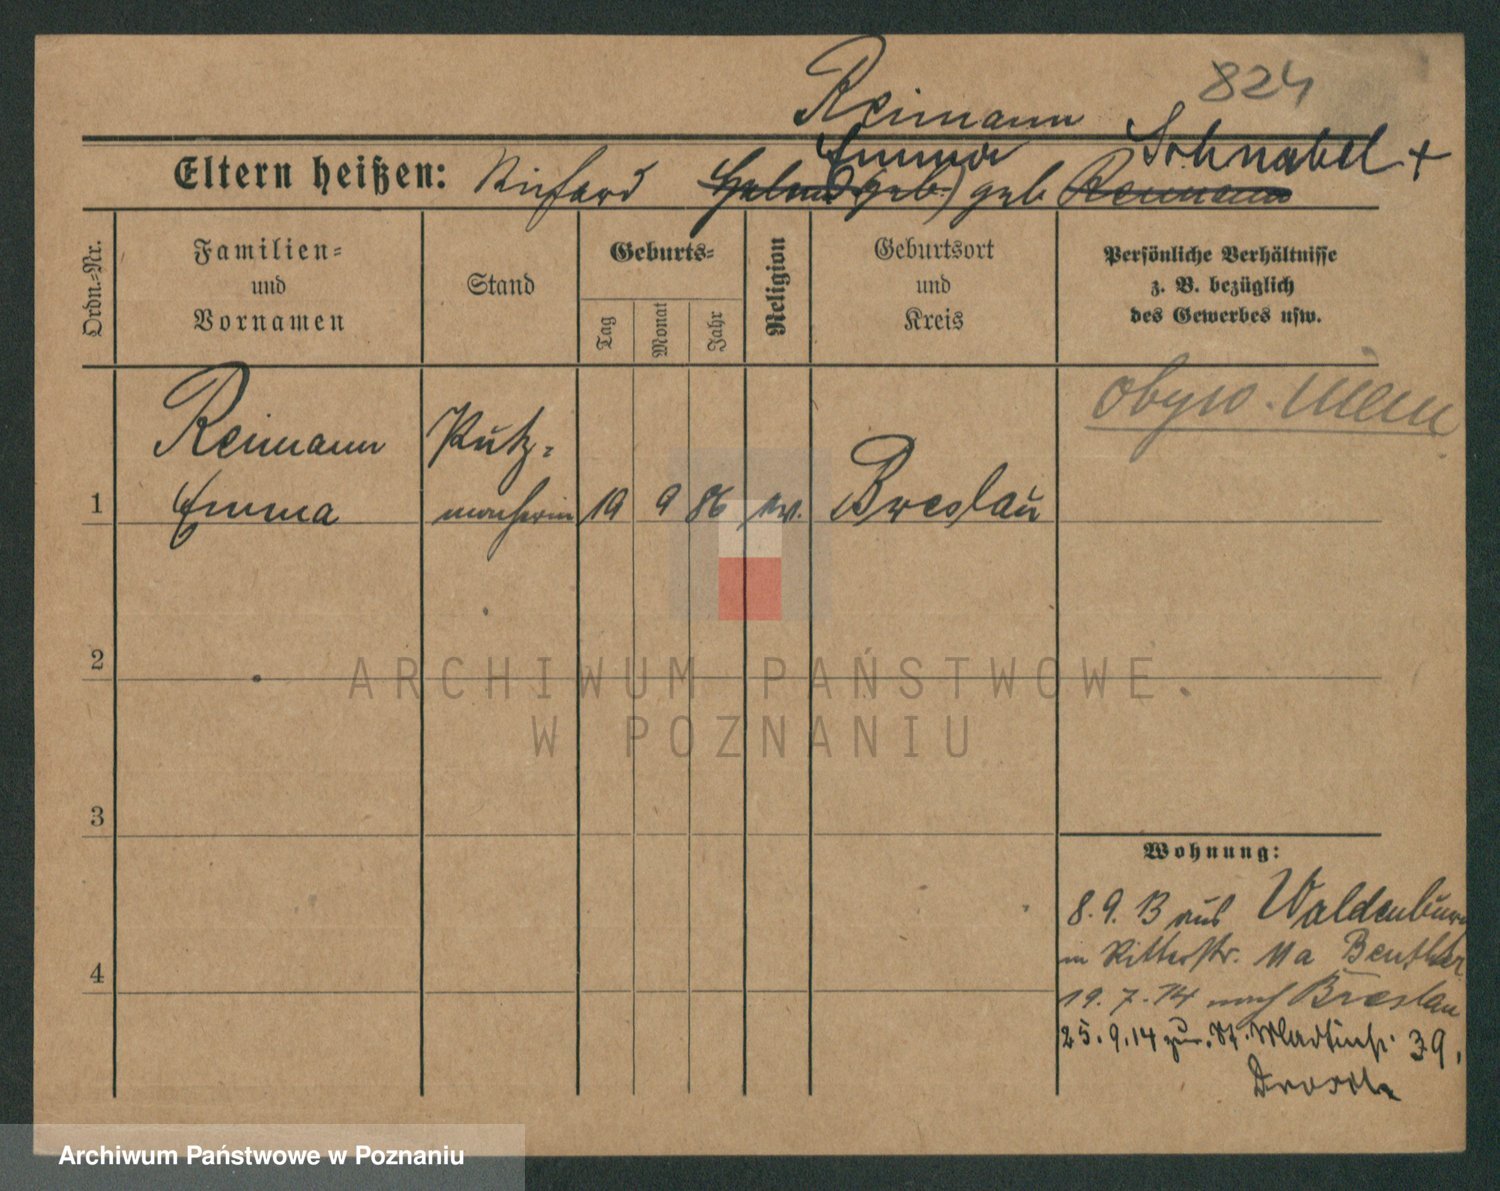 824
Reimann
Emma Schnabel +
Eltern heißen: Richard geb Reimann
Ordn.-Nr.
Familien-
und
Vornamen
Stand
Geburts-
Tag
Monat
Jahr
Religion
Geburtsort
und
Kreis
Persönliche Verhältnisse
z. B. bezüglich
des Gewerbes usw.
obyw. niem.
1
Reimann
Emma
Putz-
macherin
19
9
86
ev.
Breslau
2
3
4
Wohnung:
8.9.13 aus Waldenburg
in Ritterstr. 11a
19.7.14 nach Breslau
25.9.14 zur. St. Martinstr. 39,
ARCHIWUM PAŃSTWOWE
W POZNANIU
Archiwum Państwowe w Poznaniu